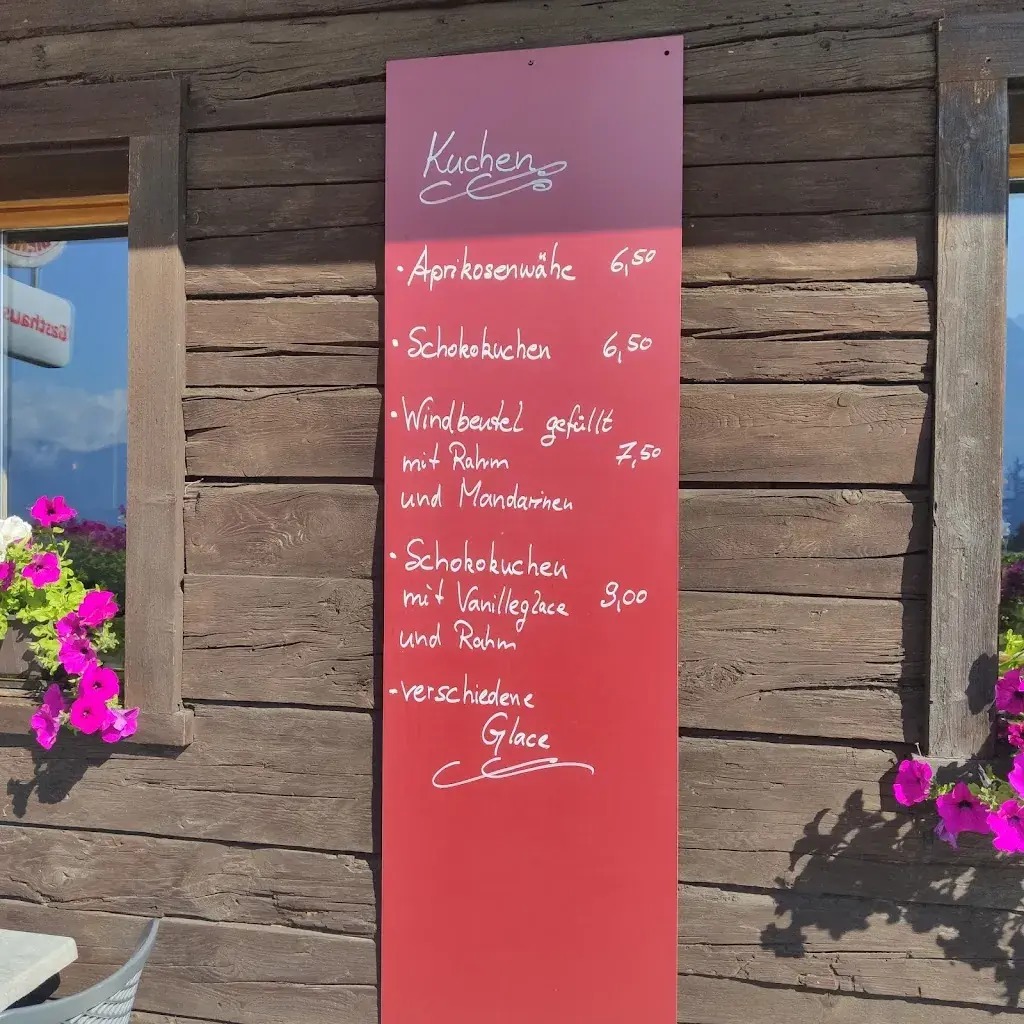 Gasthaus
Kuchen
• Aprikosenwähe 6,50
• Schokokuchen 6,50
• Windbeutel gefüllt
mit Rahm 7,50
und Mandarinen
• Schokokuchen
mit Vanilleglace 9,00
und Rahm
- verschiedene
Glace